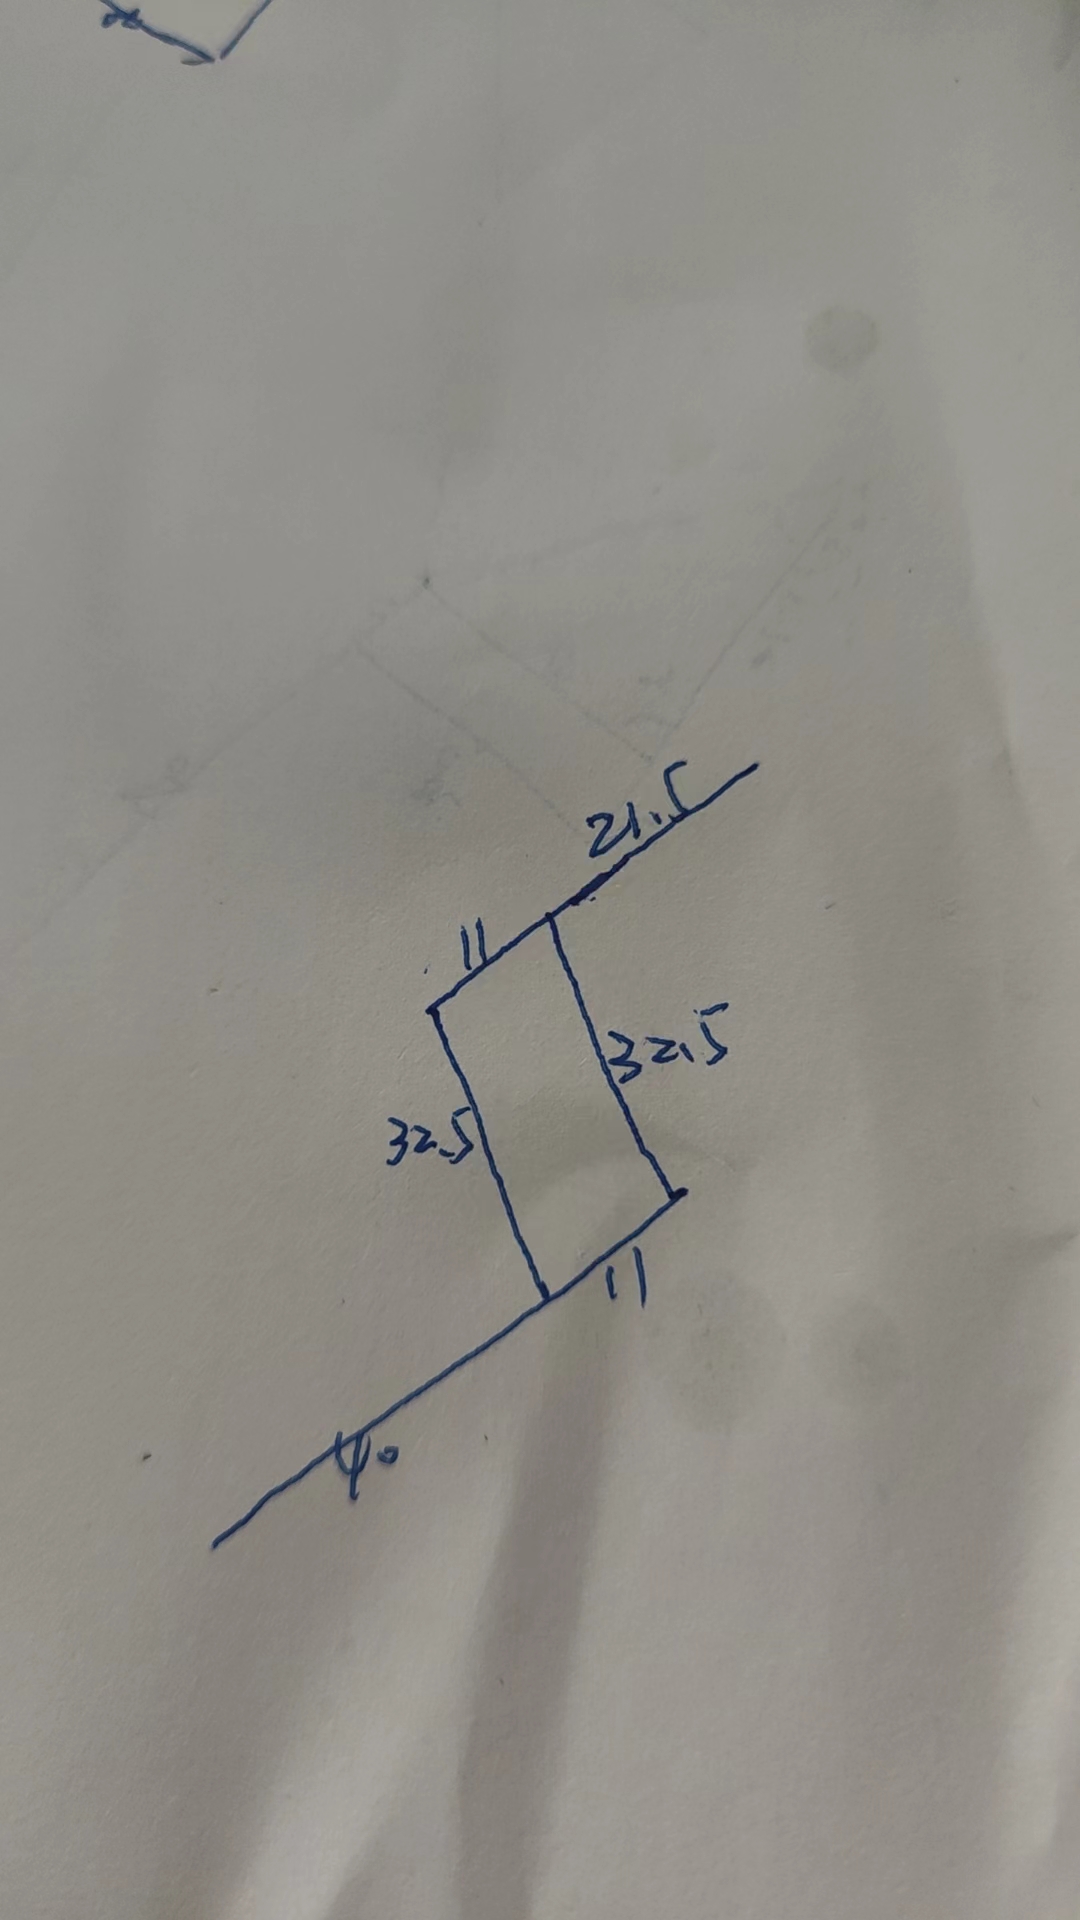 21.5
11
32.5
32.5
11
40